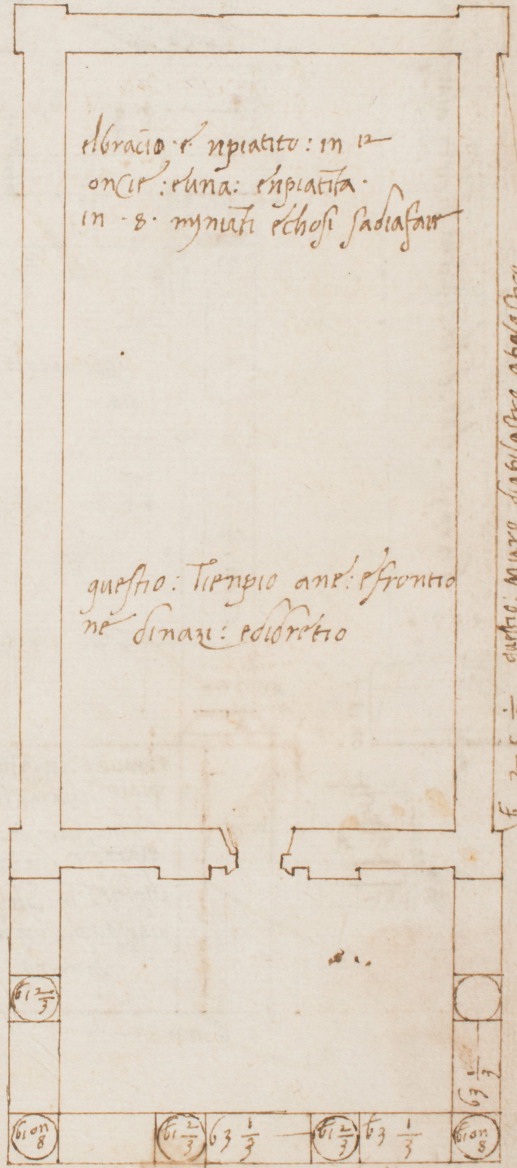 elbracio · e npiatito : in 12
oncie : eluna : enpiatita ·
in · 8 · mynuti echosi sadiafare
questio : Tienpio ane : efrontio
ne dinazi : edidretio
questio : muro
b 1 2/3
b 3 1/3
b 1 on 8
b 1 2/3
b 3 1/3
b 1 2/3
b 3 1/3
b 1 on 8